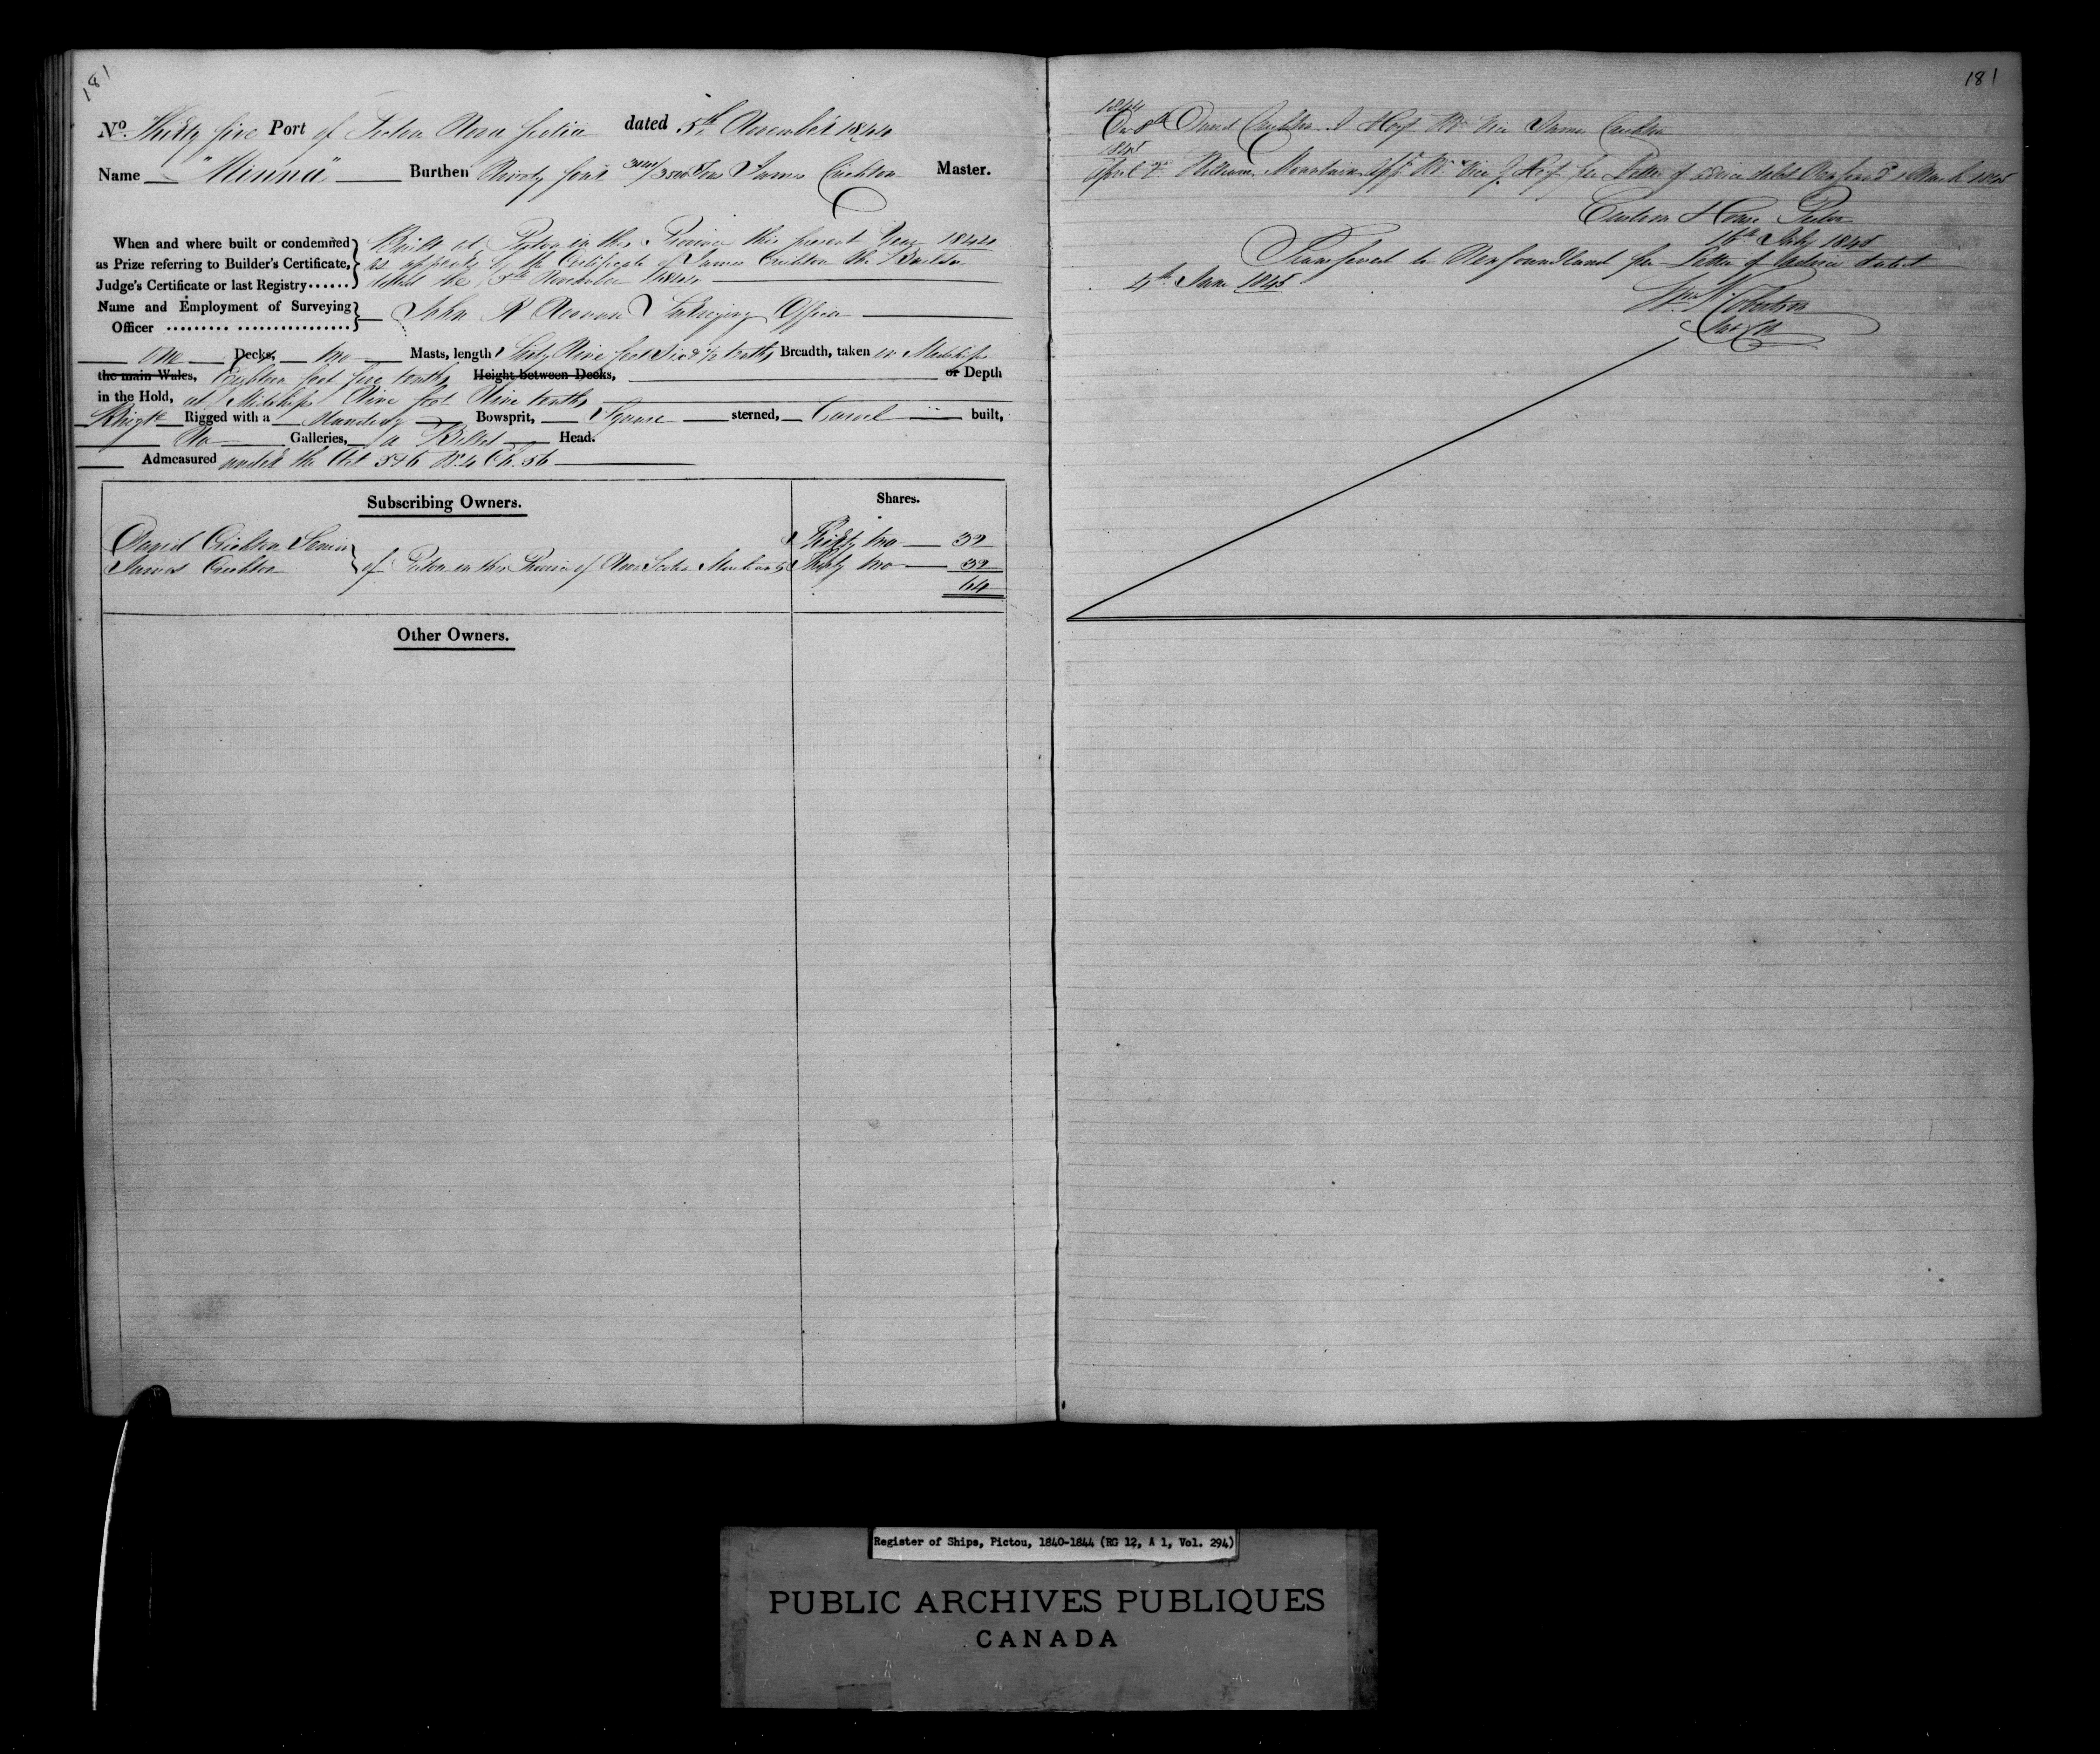 181
No. Thirty five Port of Pictou Nova Scotia dated 5th November 1844
Name "Minna" Burthen Ninety four /3500 Tons James Crichton Master.
When and where built or condemned as Prize referring to Builder's Certificate, Judge's Certificate or last Registry......
Built at Pictou in this Province this present Year 1844
as appears by the Certificate of James Crichton the Builder
dated the 5th November 1844
Name and Employment of Surveying Officer ......... ................
John Surveying Officer
One Decks, two Masts, length Sixty Nine feet Six & 1/2 tenths Breadth, taken in Midships
the main Wales, Eighteen feet five tenths Height between Decks, or Depth
in the Hold, at Midships Nine feet Nine tenths
Brigt Rigged with a Standing Bowsprit, Square sterned, Carvel built,
No Galleries, a Billet Head.
Admeasured under the Act 5 & 6 W. 4 Ch. 56
Subscribing Owners. Shares.
David Crichton Senior Thirty two 32
James Crichton of Pictou in this Province of Nova Scotia Merchants Thirty two 32
64
Other Owners.
181
1844
David Crichton James Crichton
1845
April William per Letter of dated March 1845
Custom House Pictou
16th July 1845
Transferred to Newfoundland per Letter of Advice dated
4th June 1845
Wm Robertson
Register of Ships, Pictou, 1840-1844 (RG 12, A 1, Vol. 294)
PUBLIC ARCHIVES PUBLIQUES
CANADA